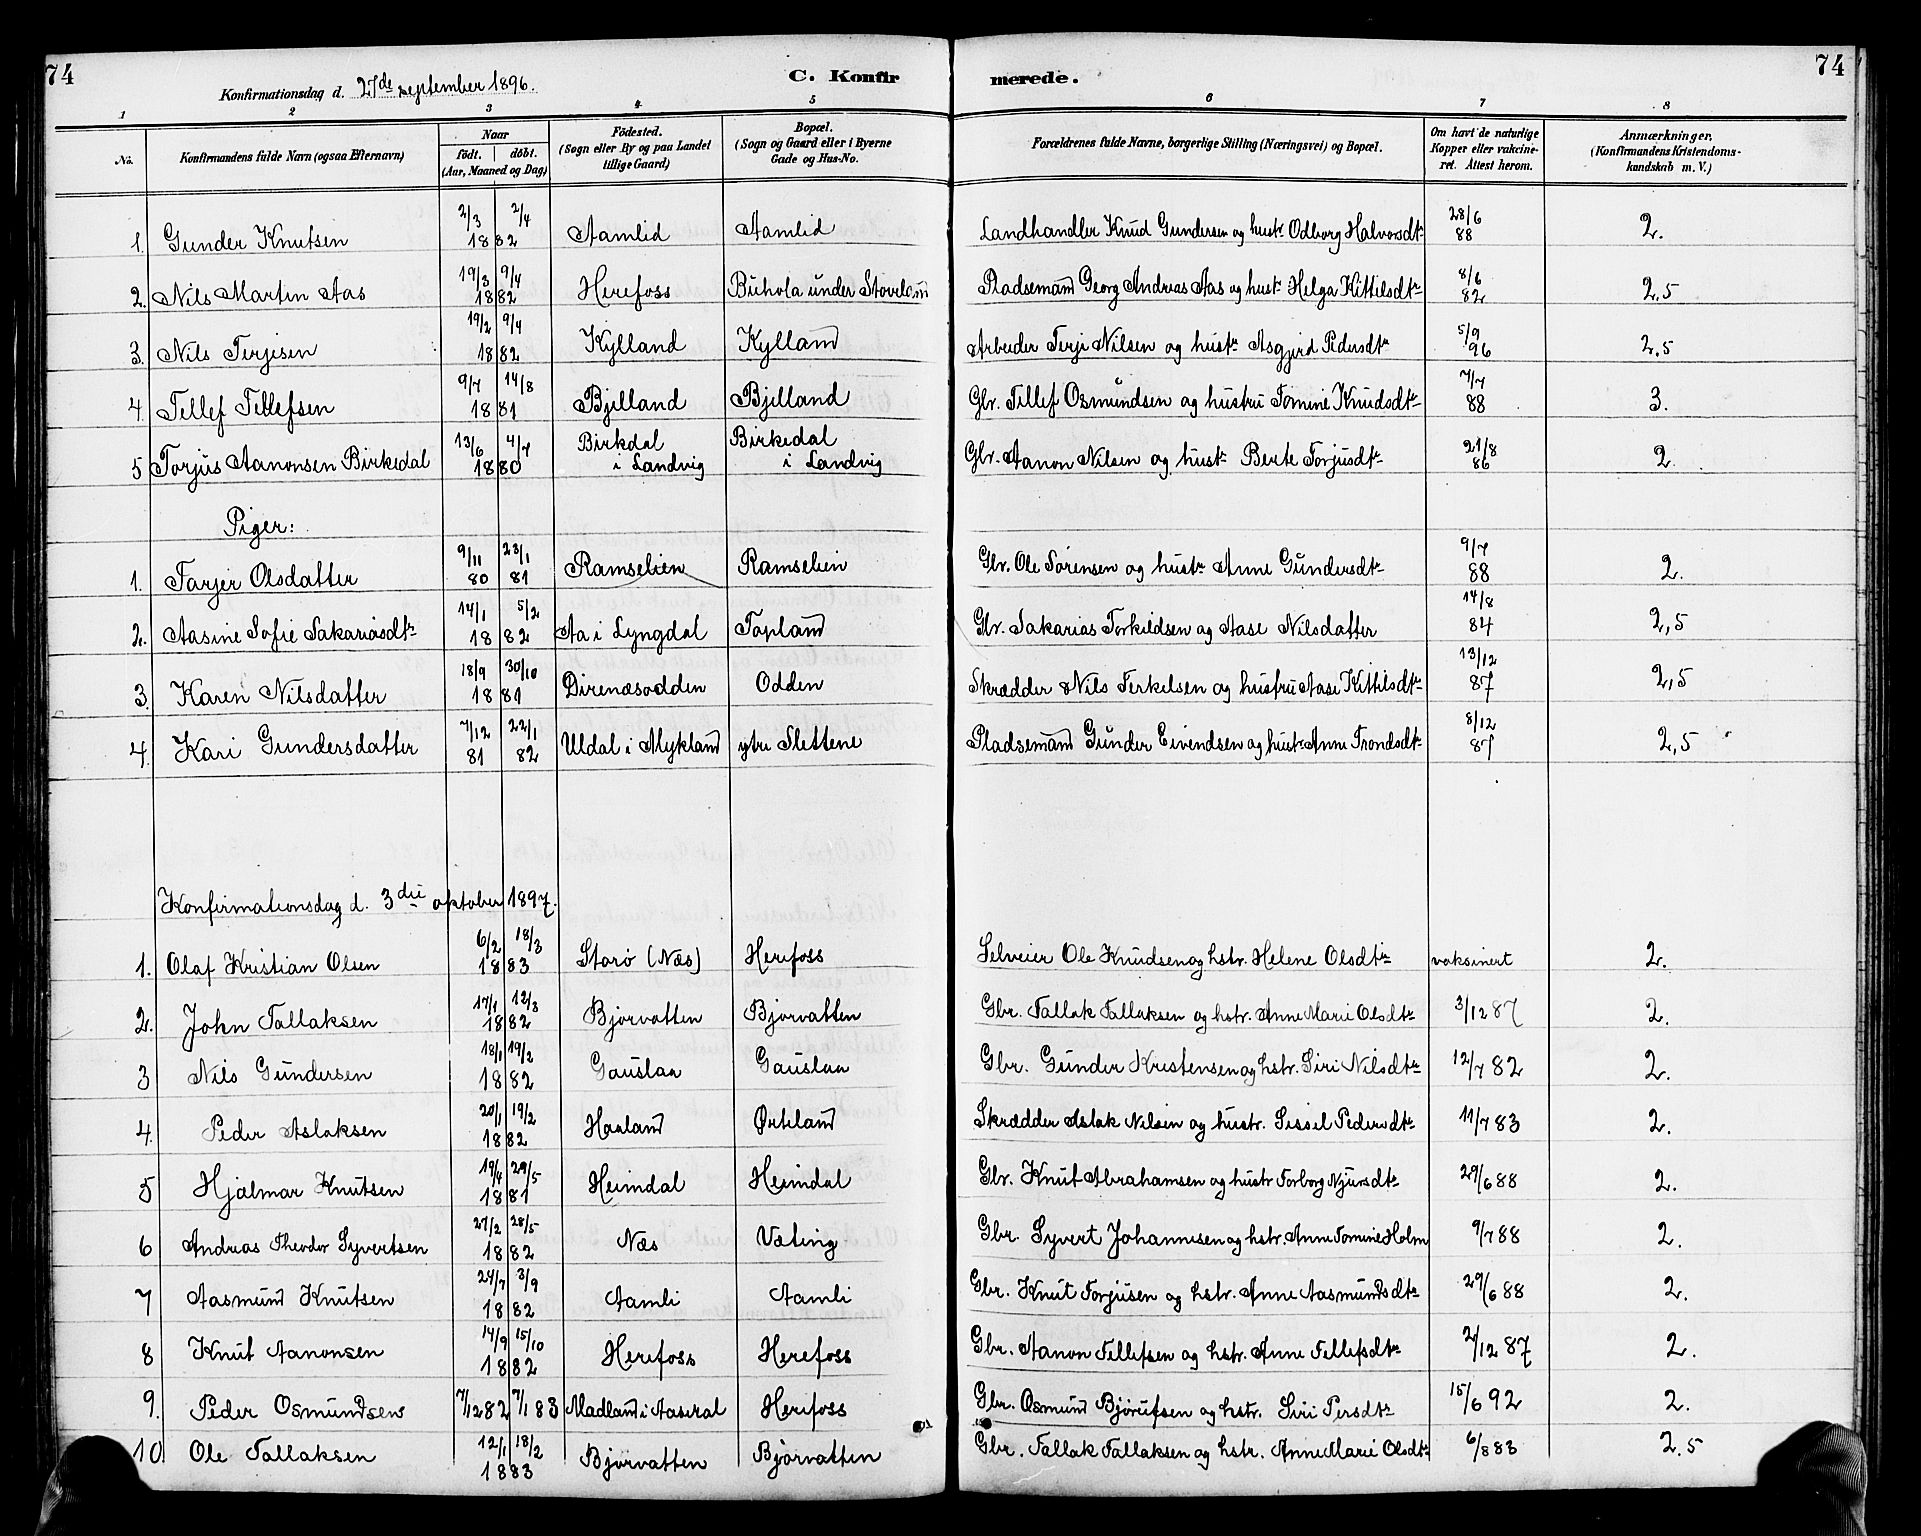 74
C. Konfirmerede.
74
Konfirmationsdag d. 27de september 1896.
1 2 3 4 5 6 7 8
No. Konfirmandens fulde Navn (ogsaa Efternavn) Naar födt. döbt. (Aar, Maaned og Dag) Födested. (Sogn eller By og paa Landet tillige Gaard) Bopæl. (Sogn og Gaard eller i Byerne Gade og Hus-No. Forældrenes fulde Navne, borgerlige Stilling (Næringsvei) og Bopæl. Om havt de naturlige Kopper eller vakcineret. Attest herom. Anmærkninger. (Konfirmandens Kristendomskundskab m. V.)
1. Gunder Knutsen 2/3 2/4 1882 Aamlid Aamlid Landhandler Knud Gundersen og hustr Odborg Halvorsdtr 28/6 88 2.
2. Nils Martin Aas 19/3 9/4 1882 Herefoss Buhola under Stoveland Pladsemand Georg Andreas Aas og hustr Helga Kittilsdtr 8/6 82 2,5
3. Nils Terjesen 19/2 9/4 1882 Kylland Kylland Arbeider Terji Nilsen og hustr Asgjerd Pedersdtr 5/9 96 2,5
4. Tellef Tellefsen 9/7 14/8 1881 Bjelland Bjelland Gbr. Tellef Osmundsen og hustru Tomine Knudsdtr 7/7 88 3.
5 Torjus Aanonsen Birkedal 13/6 4/7 1880 Birkdal i Landvig Birkedal i Landvig Gbr. Aanon Nilsen og hustr Berte Torjusdtr 21/8 86 2.
Piger:
1. Tarjer Olsdatter 9/11 80 23/1 81 Ramselien Ramselien Gbr. Ole Sørensen og hustr Anne Gundersdtr 9/7 88 2.
2. Aasine Sofie Sakariasdtr 14/1 5/2 1882 Aa i Lyngdal Topland Gbr. Sakarias Torkildsen og Aase Nilsdatter 14/8 84 2,5
3. Karen Nilsdatter 18/9 30/10 1881 Direnæsodden Odden Skrædder Nils Terkelsen og hustru Aase Kittilsdtr 13/12 87 2,5
4. Kari Gundersdatter 7/12 81 22/1 82 Uldal i Mykland ytre Slettene Pladsemand Gunder Eivendsen og hustr Anne Trondsdtr 8/12 87 2,5
Konfirmationsdag d. 3die oktober 1897.
1. Olaf Kristian Olsen 6/2 18/3 1883 Storø (Næs) Herefoss Selveier Ole Knudsen og hstr. Helene Olsdtr vaksinert 2.
2. John Tallaksen 17/1 12/3 1882 Bjørvatten Bjørvatten Gbr. Tallak Tallaksen og hstr. Anne Marie Olsdtr 3/12 87 2.
3 Nils Gundersen 18/1 19/2 1882 Gauslaa Gauslaa Gbr. Gunder Kristensen og hstr. Siri Nilsdtr 12/7 82 2.
4. Peder Aslaksen 20/1 19/2 1882 Haaland Ørteland Skrædder Aslak Nilsen og hustr. Sissel Pedersdtr 11/7 83 2.
5 Hjalmar Knutsen 19/4 29/5 1881 Heimdal Heimdal Gbr. Knut Abrahamsen og hustr Torborg Njursdtr 29/6 88 2.
6 Andreas Theodor Syvertsen 27/2 28/5 1882 Næs Væting Gbr. Syvert Johannesen og hstr. Anne Tomine Holm 9/7 88 2.
7 Aasmund Knutsen 24/7 3/9 1882 Aamli Aamli Gbr. Knut Torjusen og hstr. Anne Aasmundsdtr 29/6 88 2.
8 Knut Aanonsen 14/9 15/10 1882 Herefoss Herefoss Gbr. Aanon Tellefsen og hstr. Anne Tellefsdtr 2/12 87 2.
9. Peder Osmundsen 7/12 82 7/1 83 Madland i Aaseral Herefoss Gbr. Osmund Bjørufsen og hstr. Siri Persdtr 15/6 92 2.
10 Ole Tallaksen 12/1 18/2 1883 Bjørvatten Bjørvatten Gbr. Tallak Tallaksen og hstr. Anne Marie Olsdtr 6/8 83 2.5